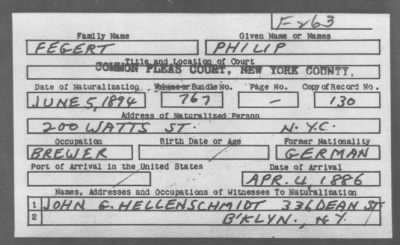 F-263
Family Name Given Name or Names
FEGERT PHILIP
Title and Location of Court
COMMON PLEAS COURT, NEW YORK COUNTY.
Date of Naturalization Volume or Bundle No. Page No. Copy of Record No.
JUNE 5, 1894 767 — 130
Address of Naturalized Person
200 WATTS ST. N.Y.C.
Occupation Birth Date or Age Former Nationality
BREWER GERMAN
Port of Arrival in the United States Date of Arrival
APR. 4 1886
Names, Addresses and Occupations of Witnesses To Naturalization
1 JOHN G. HELLENSCHMIDT 336 DEAN ST
2 B'KLYN., N.Y.